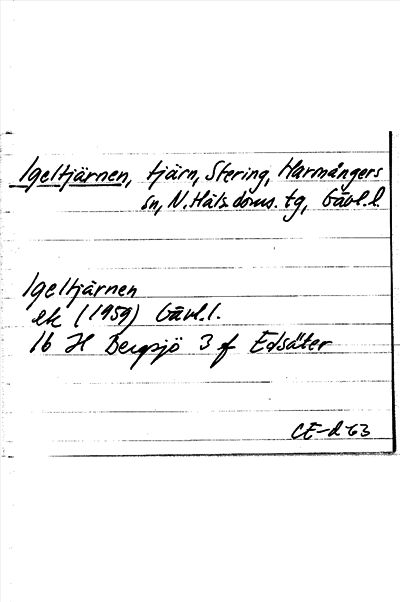 Igeltjärnen, tjärn, Stering, Harmångers
sn, N. Häls. doms. tg, Gävl. l.
Igeltjärnen
ek (1959) Gävl. l.
16 H Bergsjö 3 f Edsäter
CE-d-63